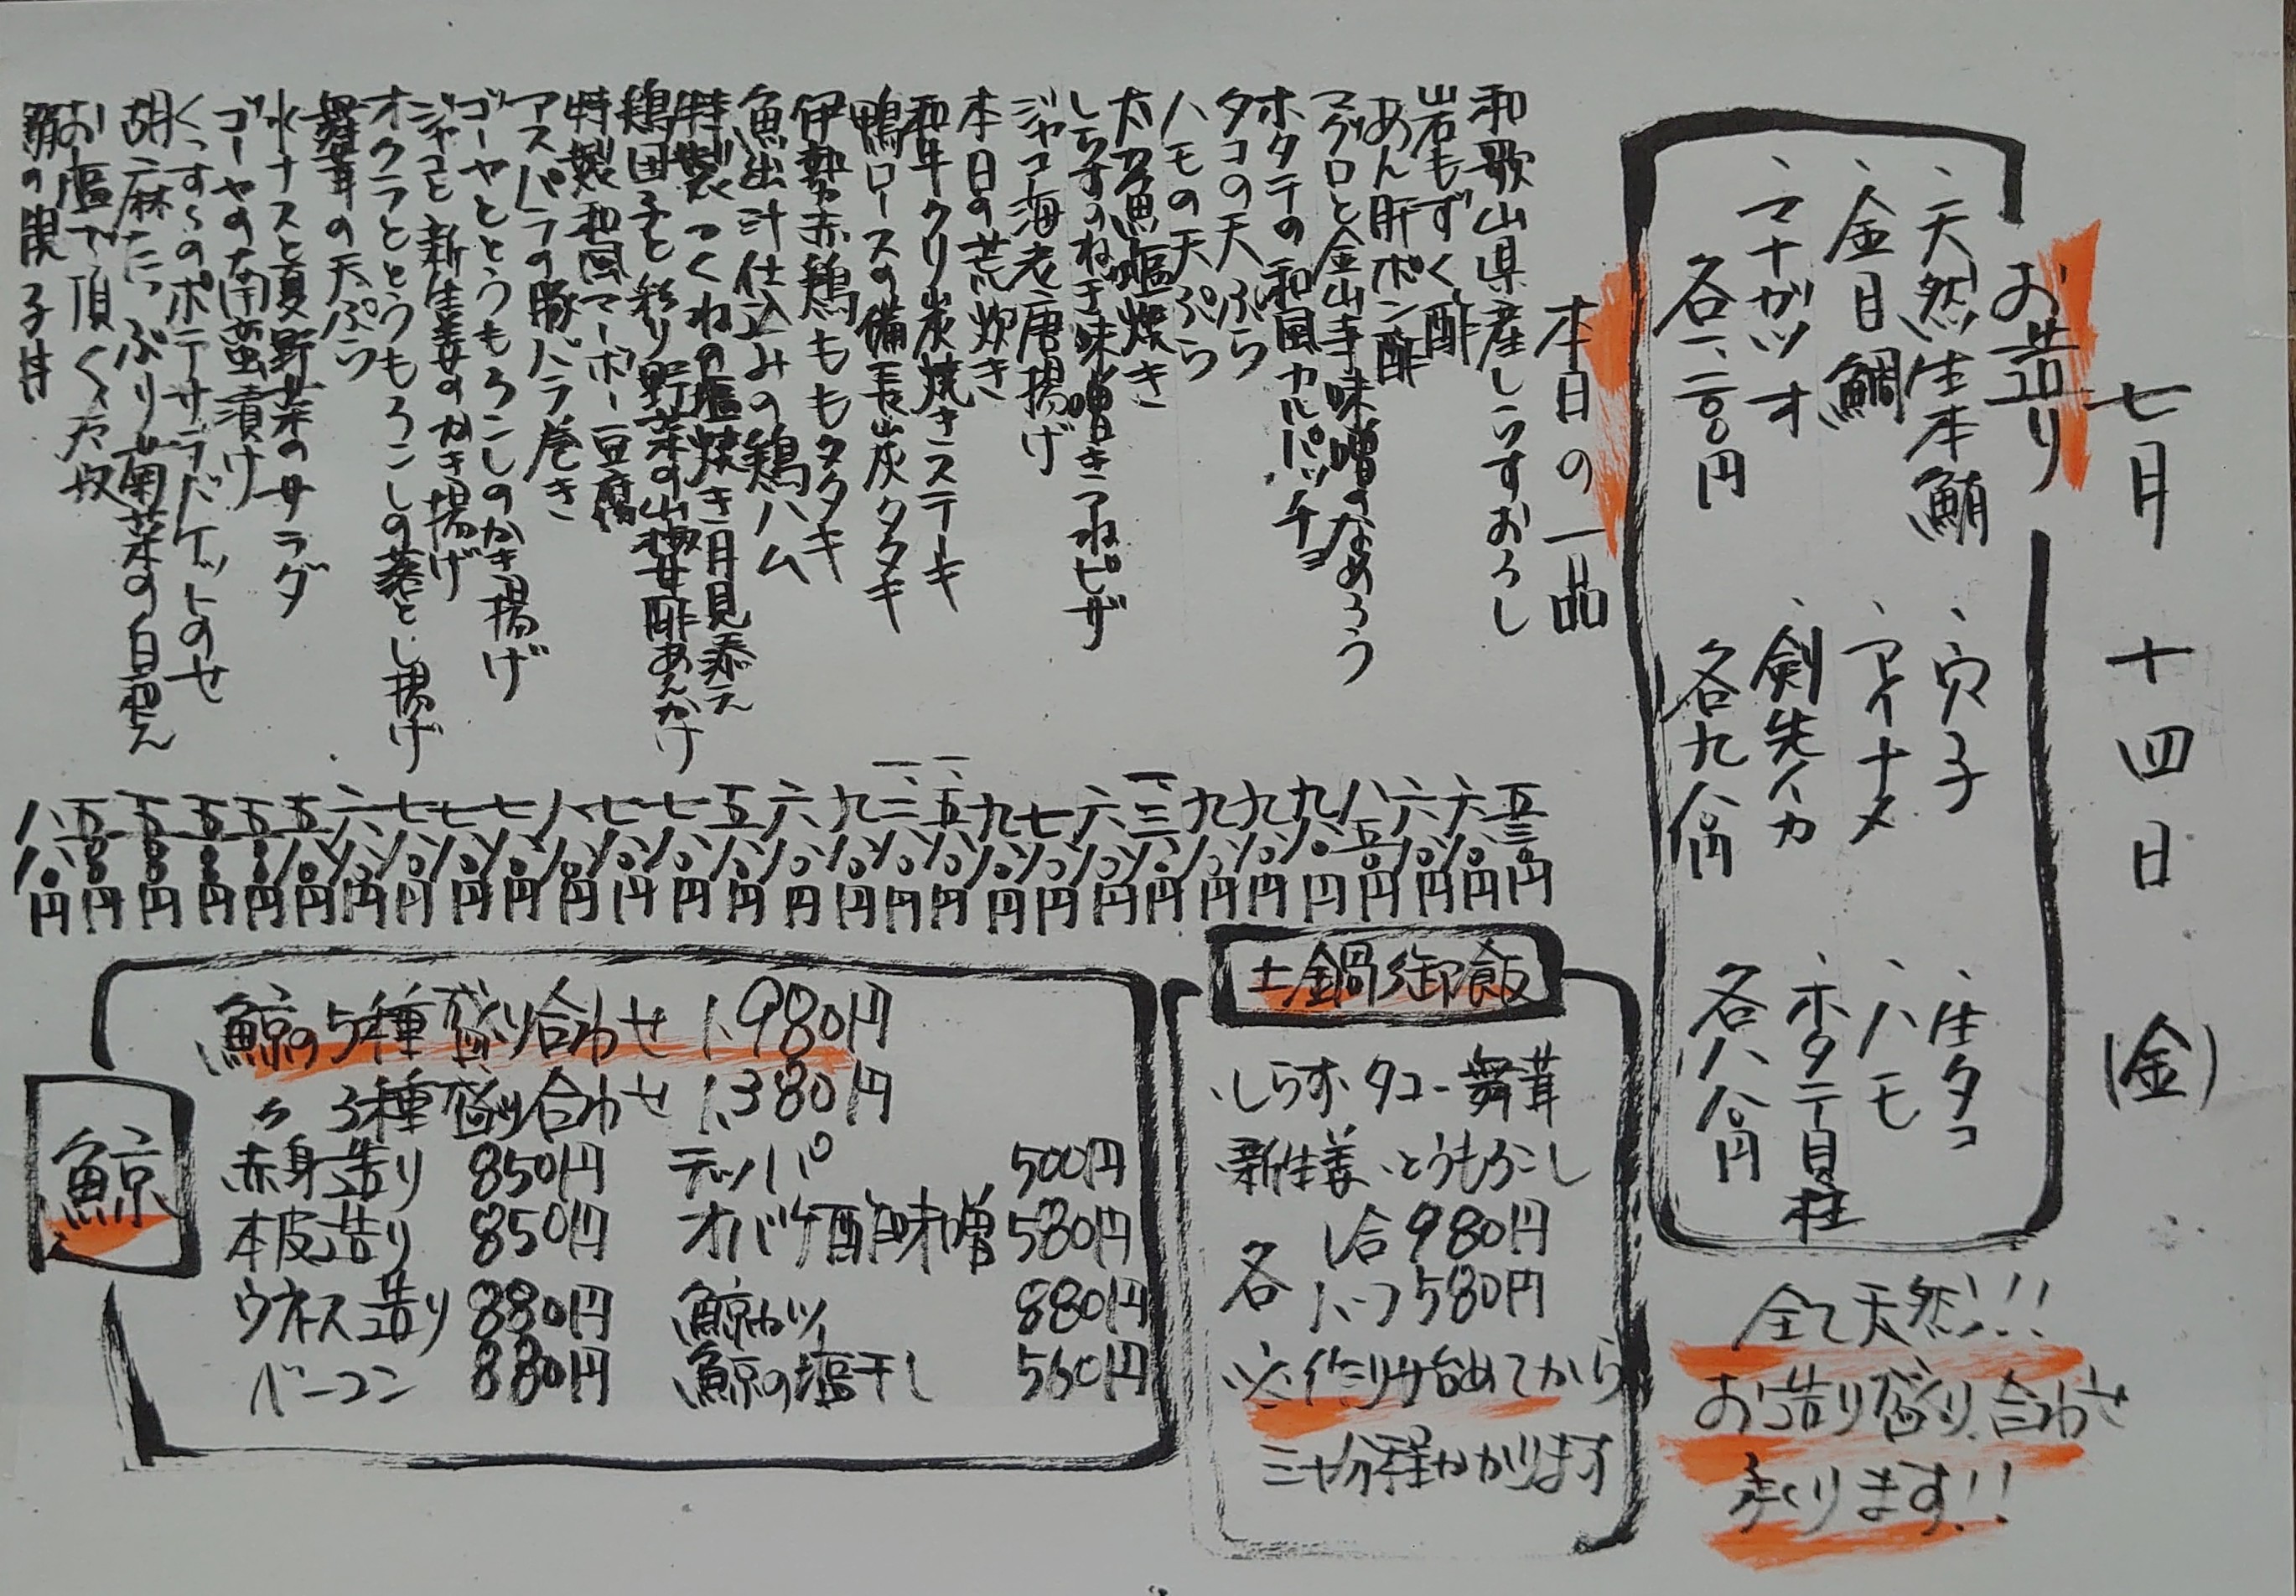 七月十四日(金)
お造り
、天然生本鮪
、金目鯛
、マナガツオ
各一、二〇〇円
、穴子
、アイナメ
、剣先イカ
各九八〇円
、生タコ
、ハモ
、ホタテ貝柱
各八八〇円
全て天然!!
お造り盛り合わせ
承ります!!
本日の一品
和歌山県産しらすおろし 五三〇円
岩もずく酢 六八〇円
あん肝ポン酢 六八〇円
マグロと金山寺味噌のなめろう 八五〇円
ホタテの和風カルパッチョ 九八〇円
タコの天ぷら 九八〇円
ハモの天ぷら 九八〇円
太刀魚塩焼き 一、三八〇円
しらすのねぎ味噌きつねピザ 六八〇円
ジャコ海老唐揚げ 七八〇円
本日の荒炊き 九八〇円
和牛クリ炭焼きステーキ 一、五八〇円
鴨ロースの備長炭タタキ 一、三八〇円
伊勢赤鶏ももタタキ 九八〇円
魚出汁仕込みの鶏ハム 六八〇円
特製つくねの塩焼き月見添え 五八〇円
鶏団子と彩り野菜の山椒甘酢あんかけ 七八〇円
特製和風マーボー豆腐 七八〇円
アスパラの豚バラ巻き 八八〇円
ゴーヤととうもろこしのかき揚げ 七八〇円
ジャコと新生姜のかき揚げ 七八〇円
オクラととうもろこしの落とし揚げ 七八〇円
舞茸の天ぷら 六八〇円
水ナスと夏野菜のサラダ 五八〇円
ゴーヤの南蛮漬け 五〇〇円
くっすらのポテサラバケットのせ 五〇〇円
胡麻たっぷり菊菜の白和え 五〇〇円
お塩で頂く冷奴 五〇〇円
鶏の親子丼 八八〇円
土鍋御飯
、しらす、タコ、舞茸
、新生姜、とうもろこし
各 1合980円
ハーフ580円
※作り始めてから
三十分程かかります
鯨
鯨の5種盛り合わせ 1,980円
〃 3種盛り合わせ 1,380円
赤身造り 850円 テッパ 500円
本皮造り 850円 オバケ酢味噌 580円
ウネス造り 880円 鯨カツ 880円
ベーコン 880円 鯨の塩干し 560円